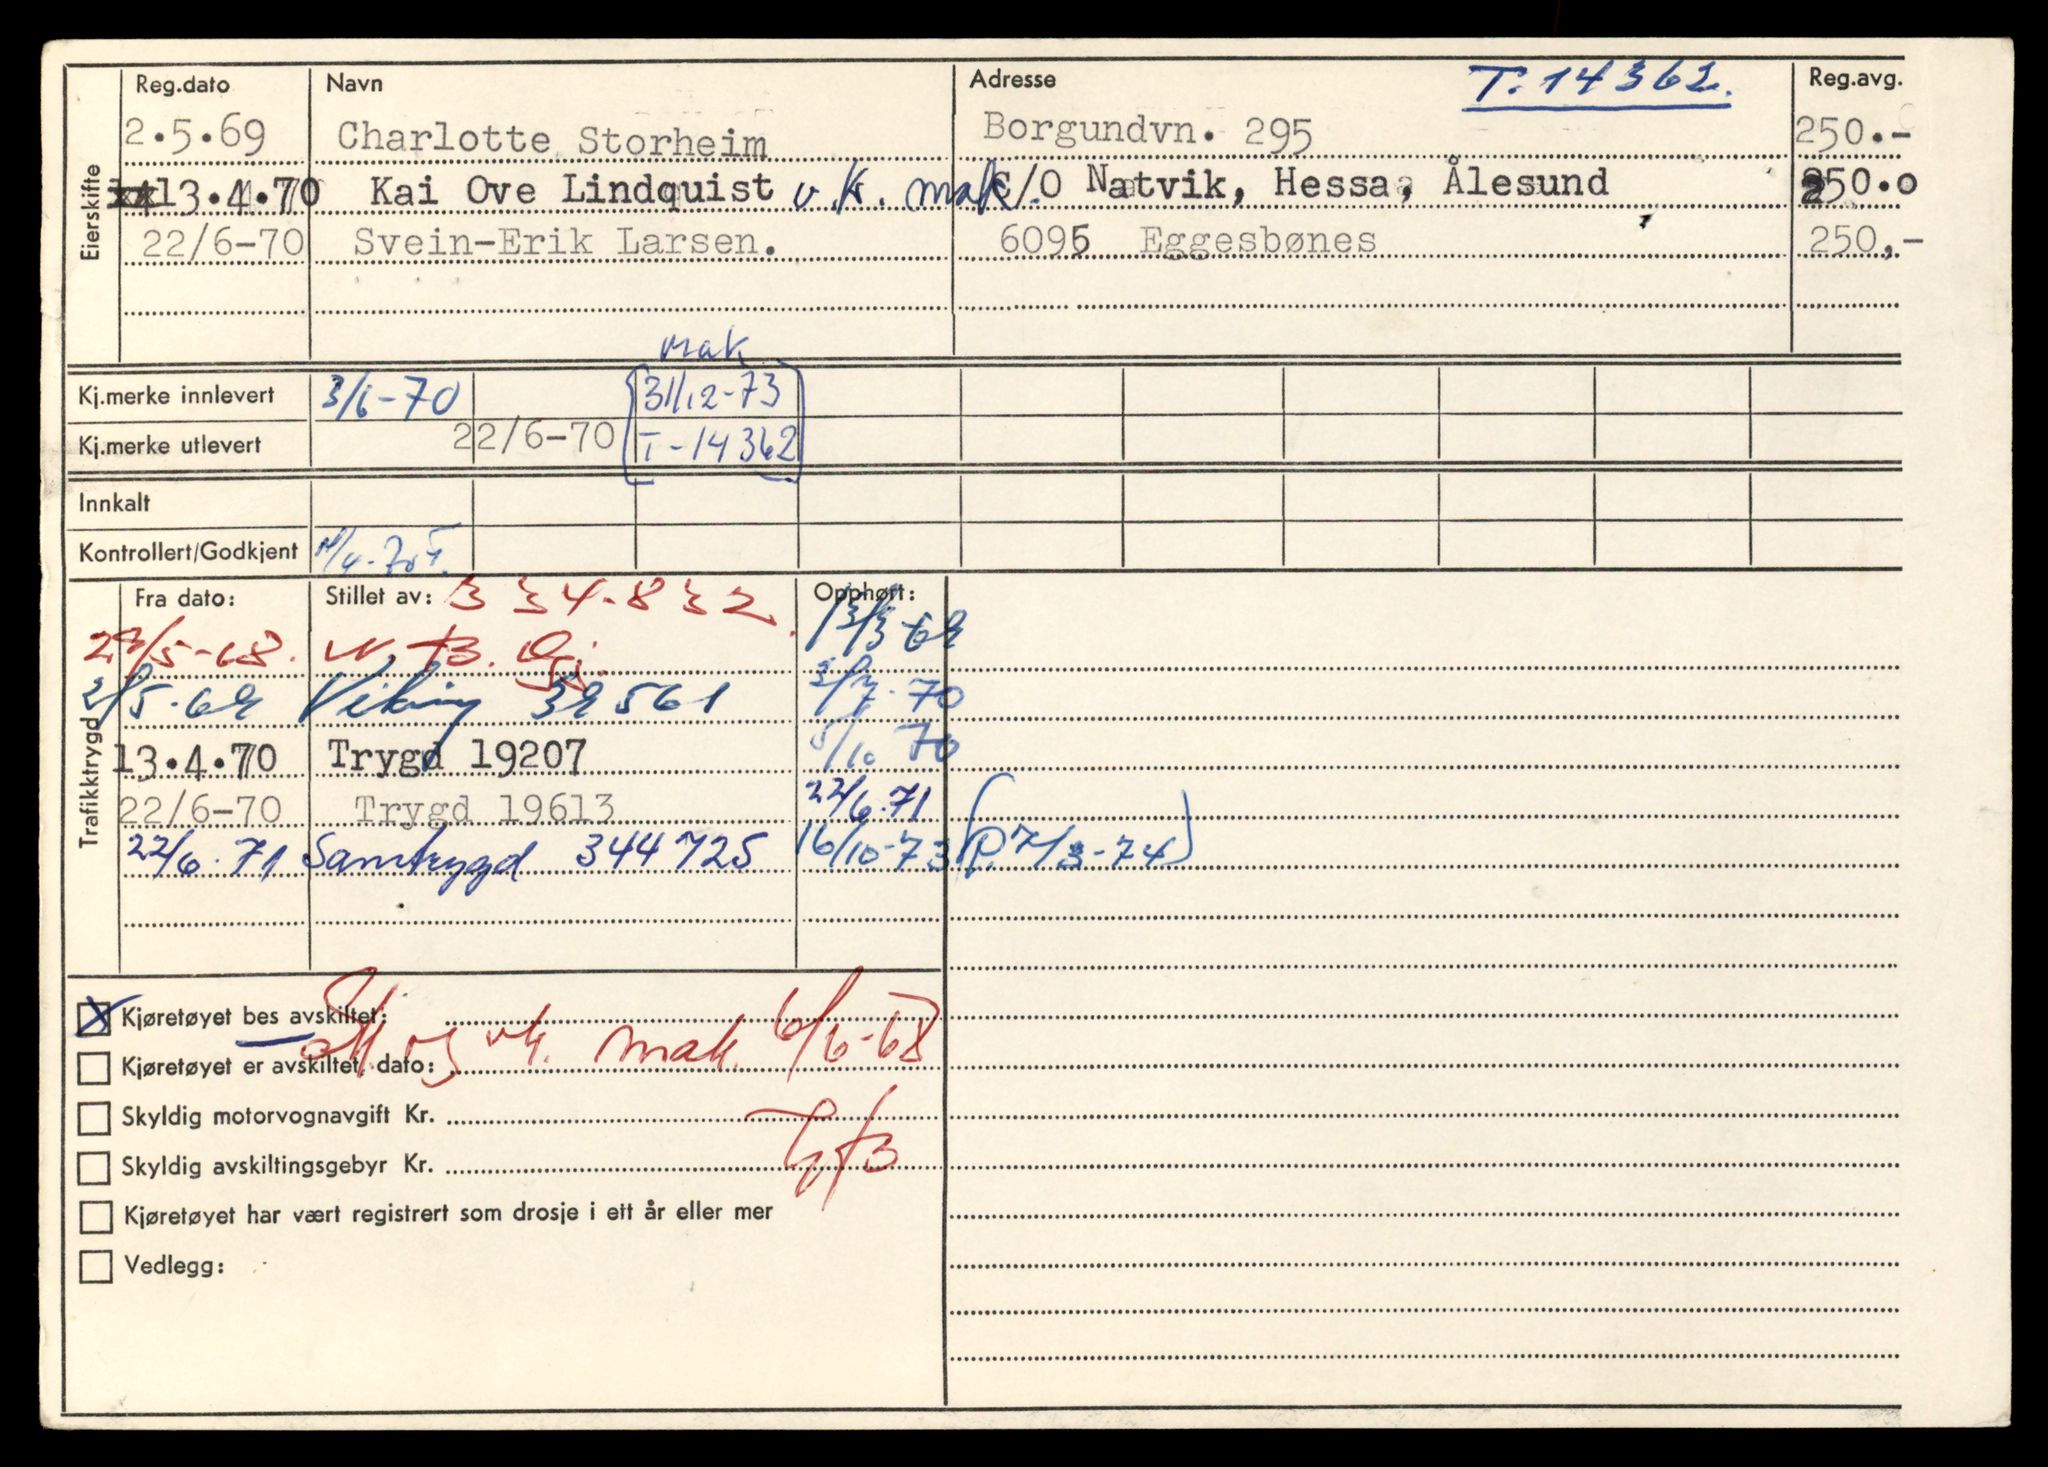 Reg.dato Navn Adresse T. 14362. Reg.avg.
Eierskifte
2.5.69 Charlotte Storheim Borgundvn. 295 250.-
13.4.70 Kai Ove Lindquist v.k. mak. C/O Natvik, Hessa, Ålesund 250.0
22/6-70 Svein-Erik Larsen. 6095 Eggesbønes 250,-
mak
Kj.merke innlevert 3/6-70 31/12-73
Kj.merke utlevert 22/6-70 T-14362
Innkalt
Kontrollert/Godkjent
Trafikktrygd
Fra dato: Stillet av: 334-832 Opphørt:
13/3-69
2/5.69 Viking 39561
13.4.70 Trygd 19207 5/10 70
22/6-70 Trygd 19613 22/6.71
22/6.71 Samtrygd 344725 16/10-73 (P. 7/3-74)
X Kjøretøyet bes avskiltet:
og vk. mak. 6/6-68
Kjøretøyet er avskiltet, dato:
Skyldig motorvognavgift Kr.
Skyldig avskiltingsgebyr Kr.
Kjøretøyet har vært registrert som drosje i ett år eller mer
Vedlegg: